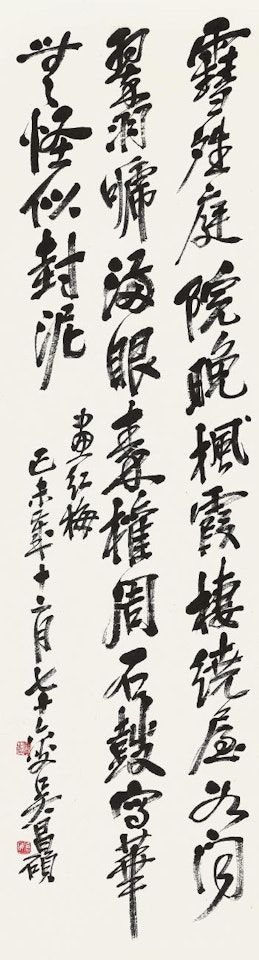 雪庭院晚楓霞棲繞屋如聞
翠羽嗁海眼榷周石鼓寫華
無怪似封泥
畫紅梅
己未年十二月七十六叟吳昌碩